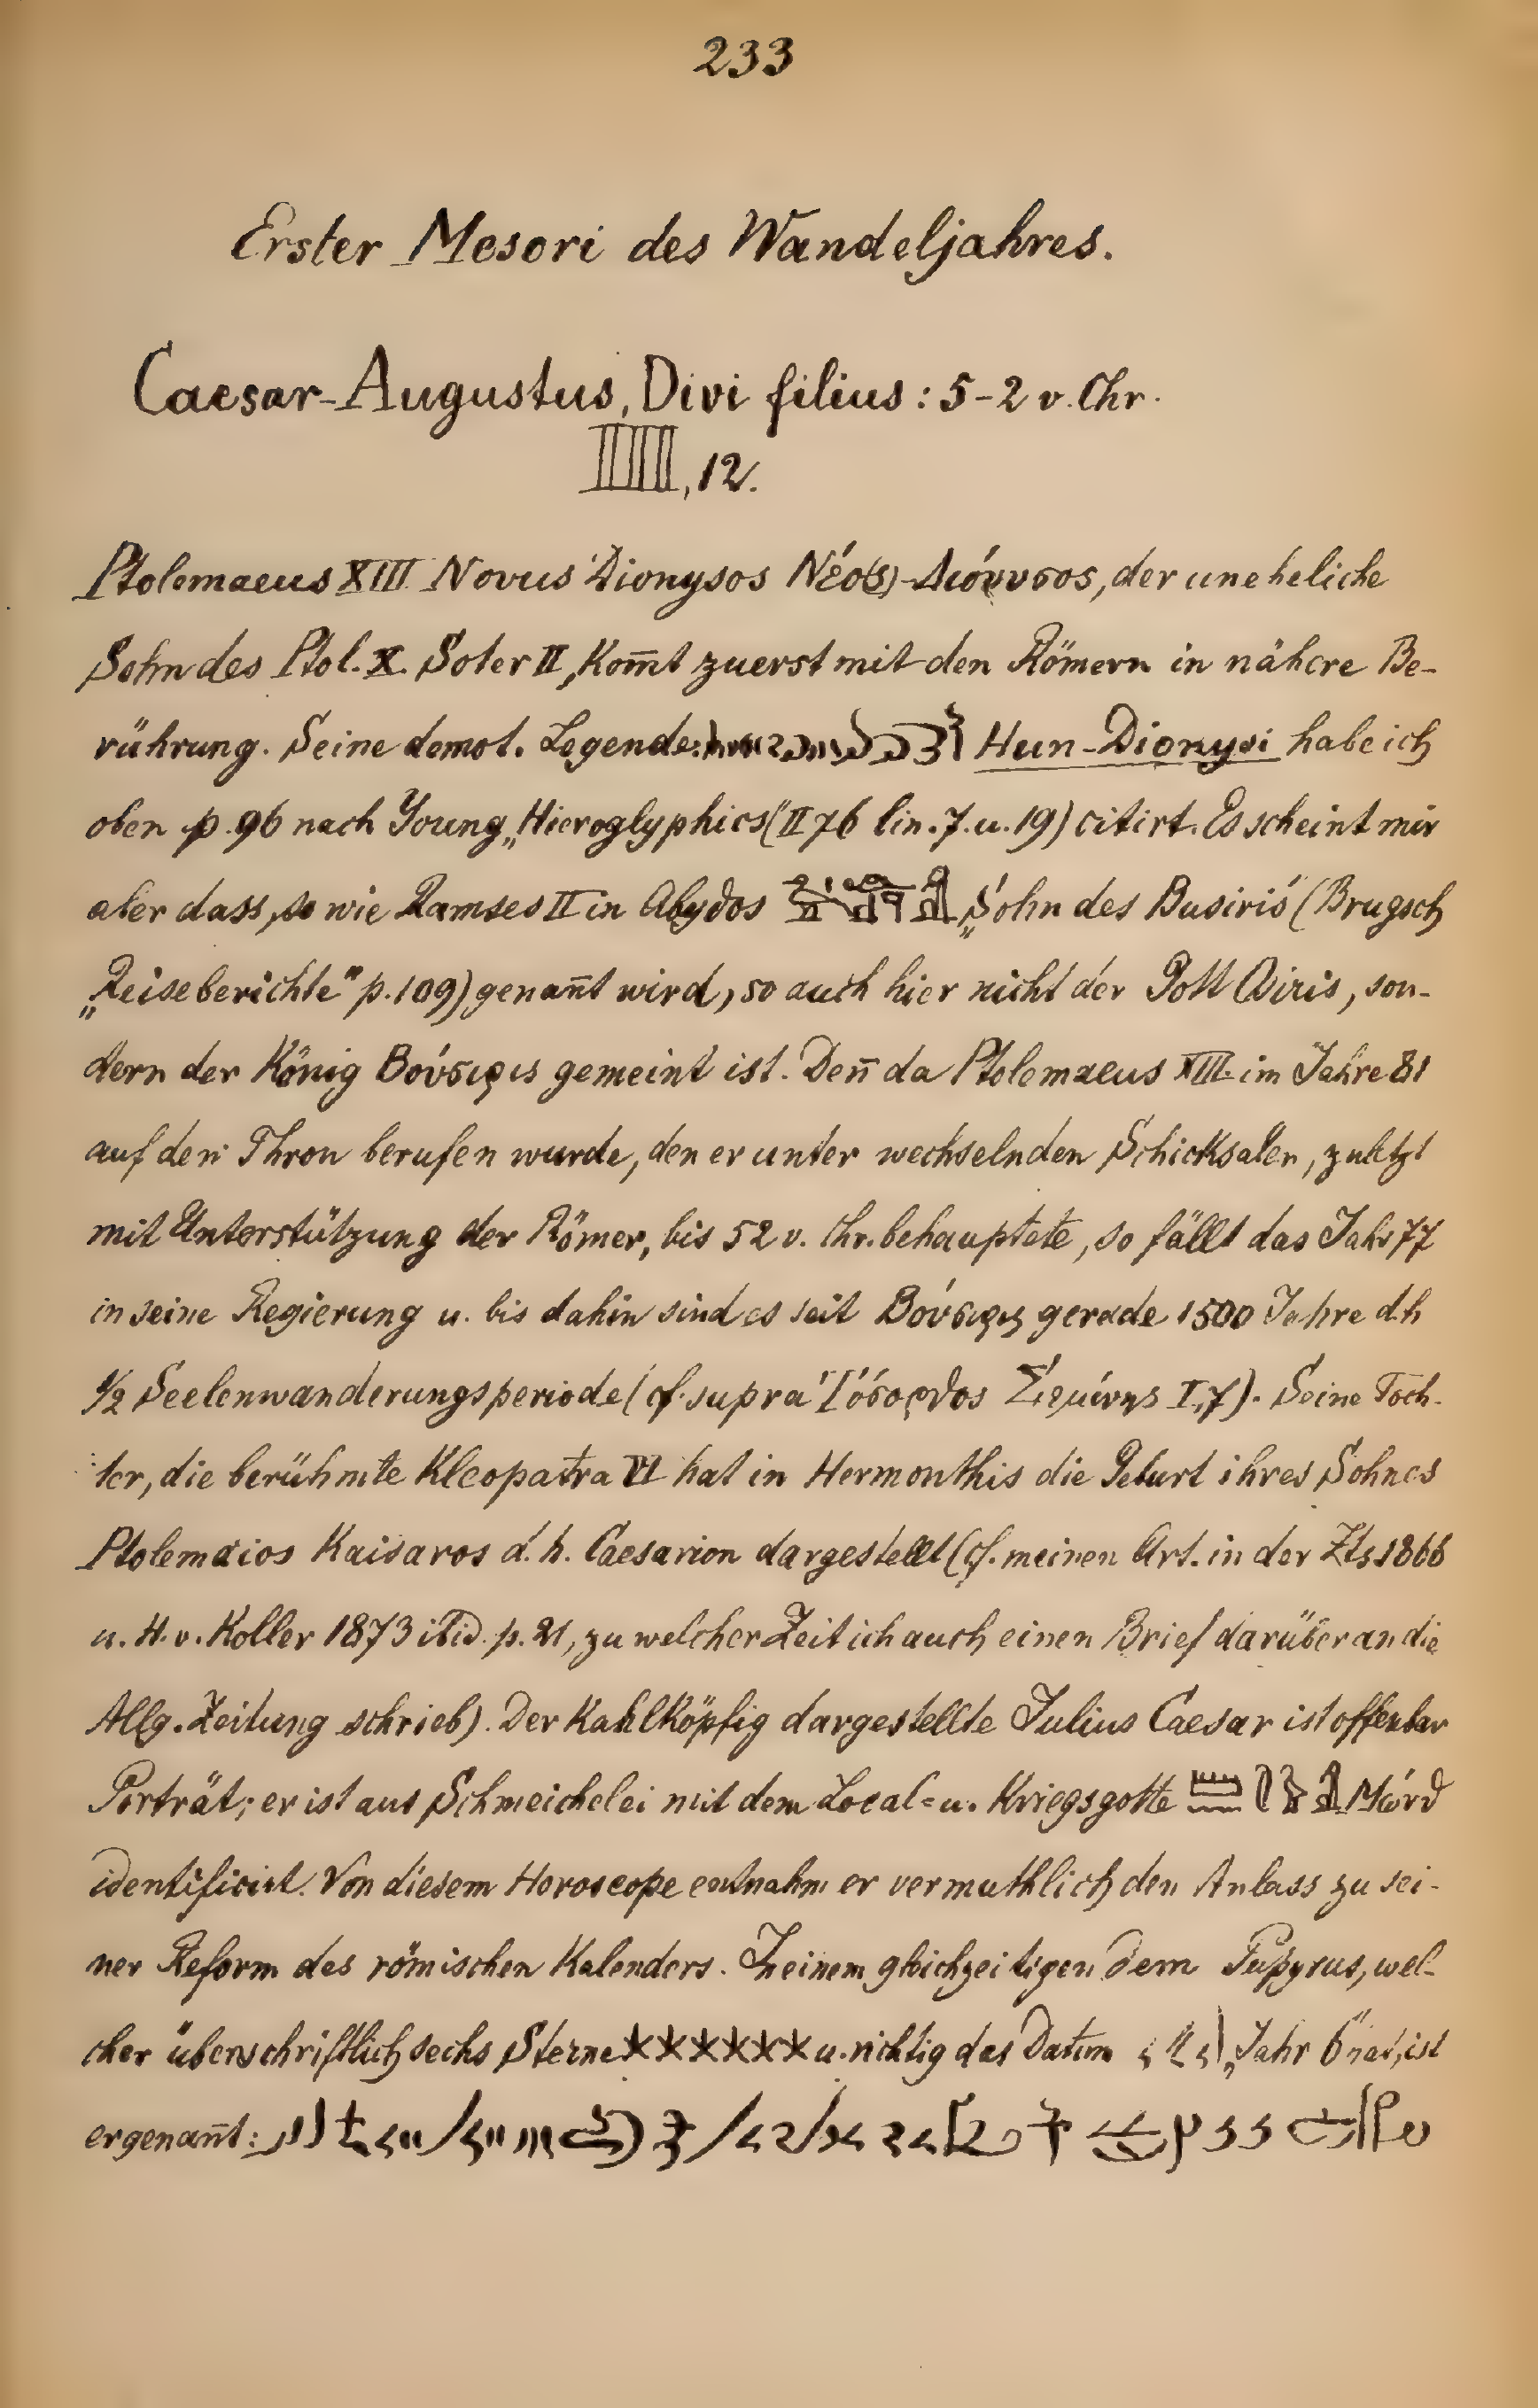 233
Erster Mesori des Wandeljahres.
Caesar-Augustus, Divi filius: 5-2 v. Chr.
, 12.
Ptolemaeus XIII Novus Dionysos Νέο(ς)-Διόνυσος, der uneheliche
Sohn des Ptol. X. Soter II, kom̅t zuerst mit den Römern in nähere Be-
rührung. Seine demot. Legende: Hun-Dionysi habe ich
oben p. 96 nach Young „Hieroglyphics“ (II 76 lin. 7. u. 19) citirt. Es scheint mir
aber dass, so wie Ramses II in Abydos „Sohn des Busiris“ (Brugsch
„Reiseberichte“ p. 109) genan̅t wird, so auch hier nicht der Gott Osiris, son-
dern der König Βούσιρις gemeint ist. Den̅ da Ptolemaeus XIII. im Jahre 81
auf den Thron berufen wurde, den er unter wechselnden Schicksalen, zuletzt
mit Unterstützung der Römer, bis 52 v. Chr. behauptete, so fällt das Jahr 77
in seine Regierung u. bis dahin sind es seit Βούσιρις gerade 1500 Jahre d.h
½ Seelenwanderungsperiode (cf. supra I, 7). Seine Toch-
ter, die berühmte Kleopatra VI hat in Hermonthis die Geburt ihres Sohnes
Ptolemaios Kaisaros d. h. Caesarion dargestellt (cf. meinen Art. in der Zts 1866
u. H. v. Koller 1873 ibid. p. 21, zu welcher Zeit ich auch einen Brief darüber an die
Allg. Zeitung schrieb). Der kahlköpfig dargestellte Julius Caesar ist offenbar
Porträt; er ist aus Schmeichelei mit dem Local- u. Kriegsgotte
identificirt. Von diesem Horoscope entnahm er vermuthlich den Anlass zu sei-
ner Reform des römischen Kalenders. In einem gleichzeitigen dem Papyrus, wel-
cher überschriftlich sechs Sterne ✶✶✶✶✶✶ u. richtig das Datum „Jahr 6“ hat, ist
er genan̅t: